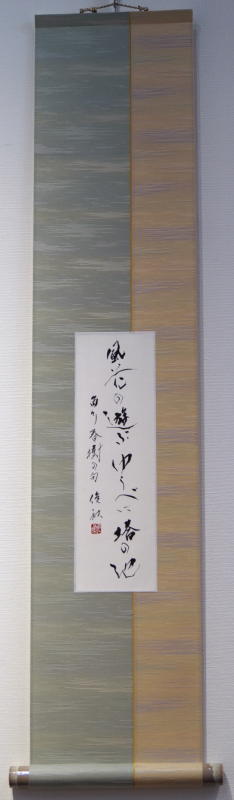 風花の遊ぶゆうべに塔の池
西村春樹の句 俊秋